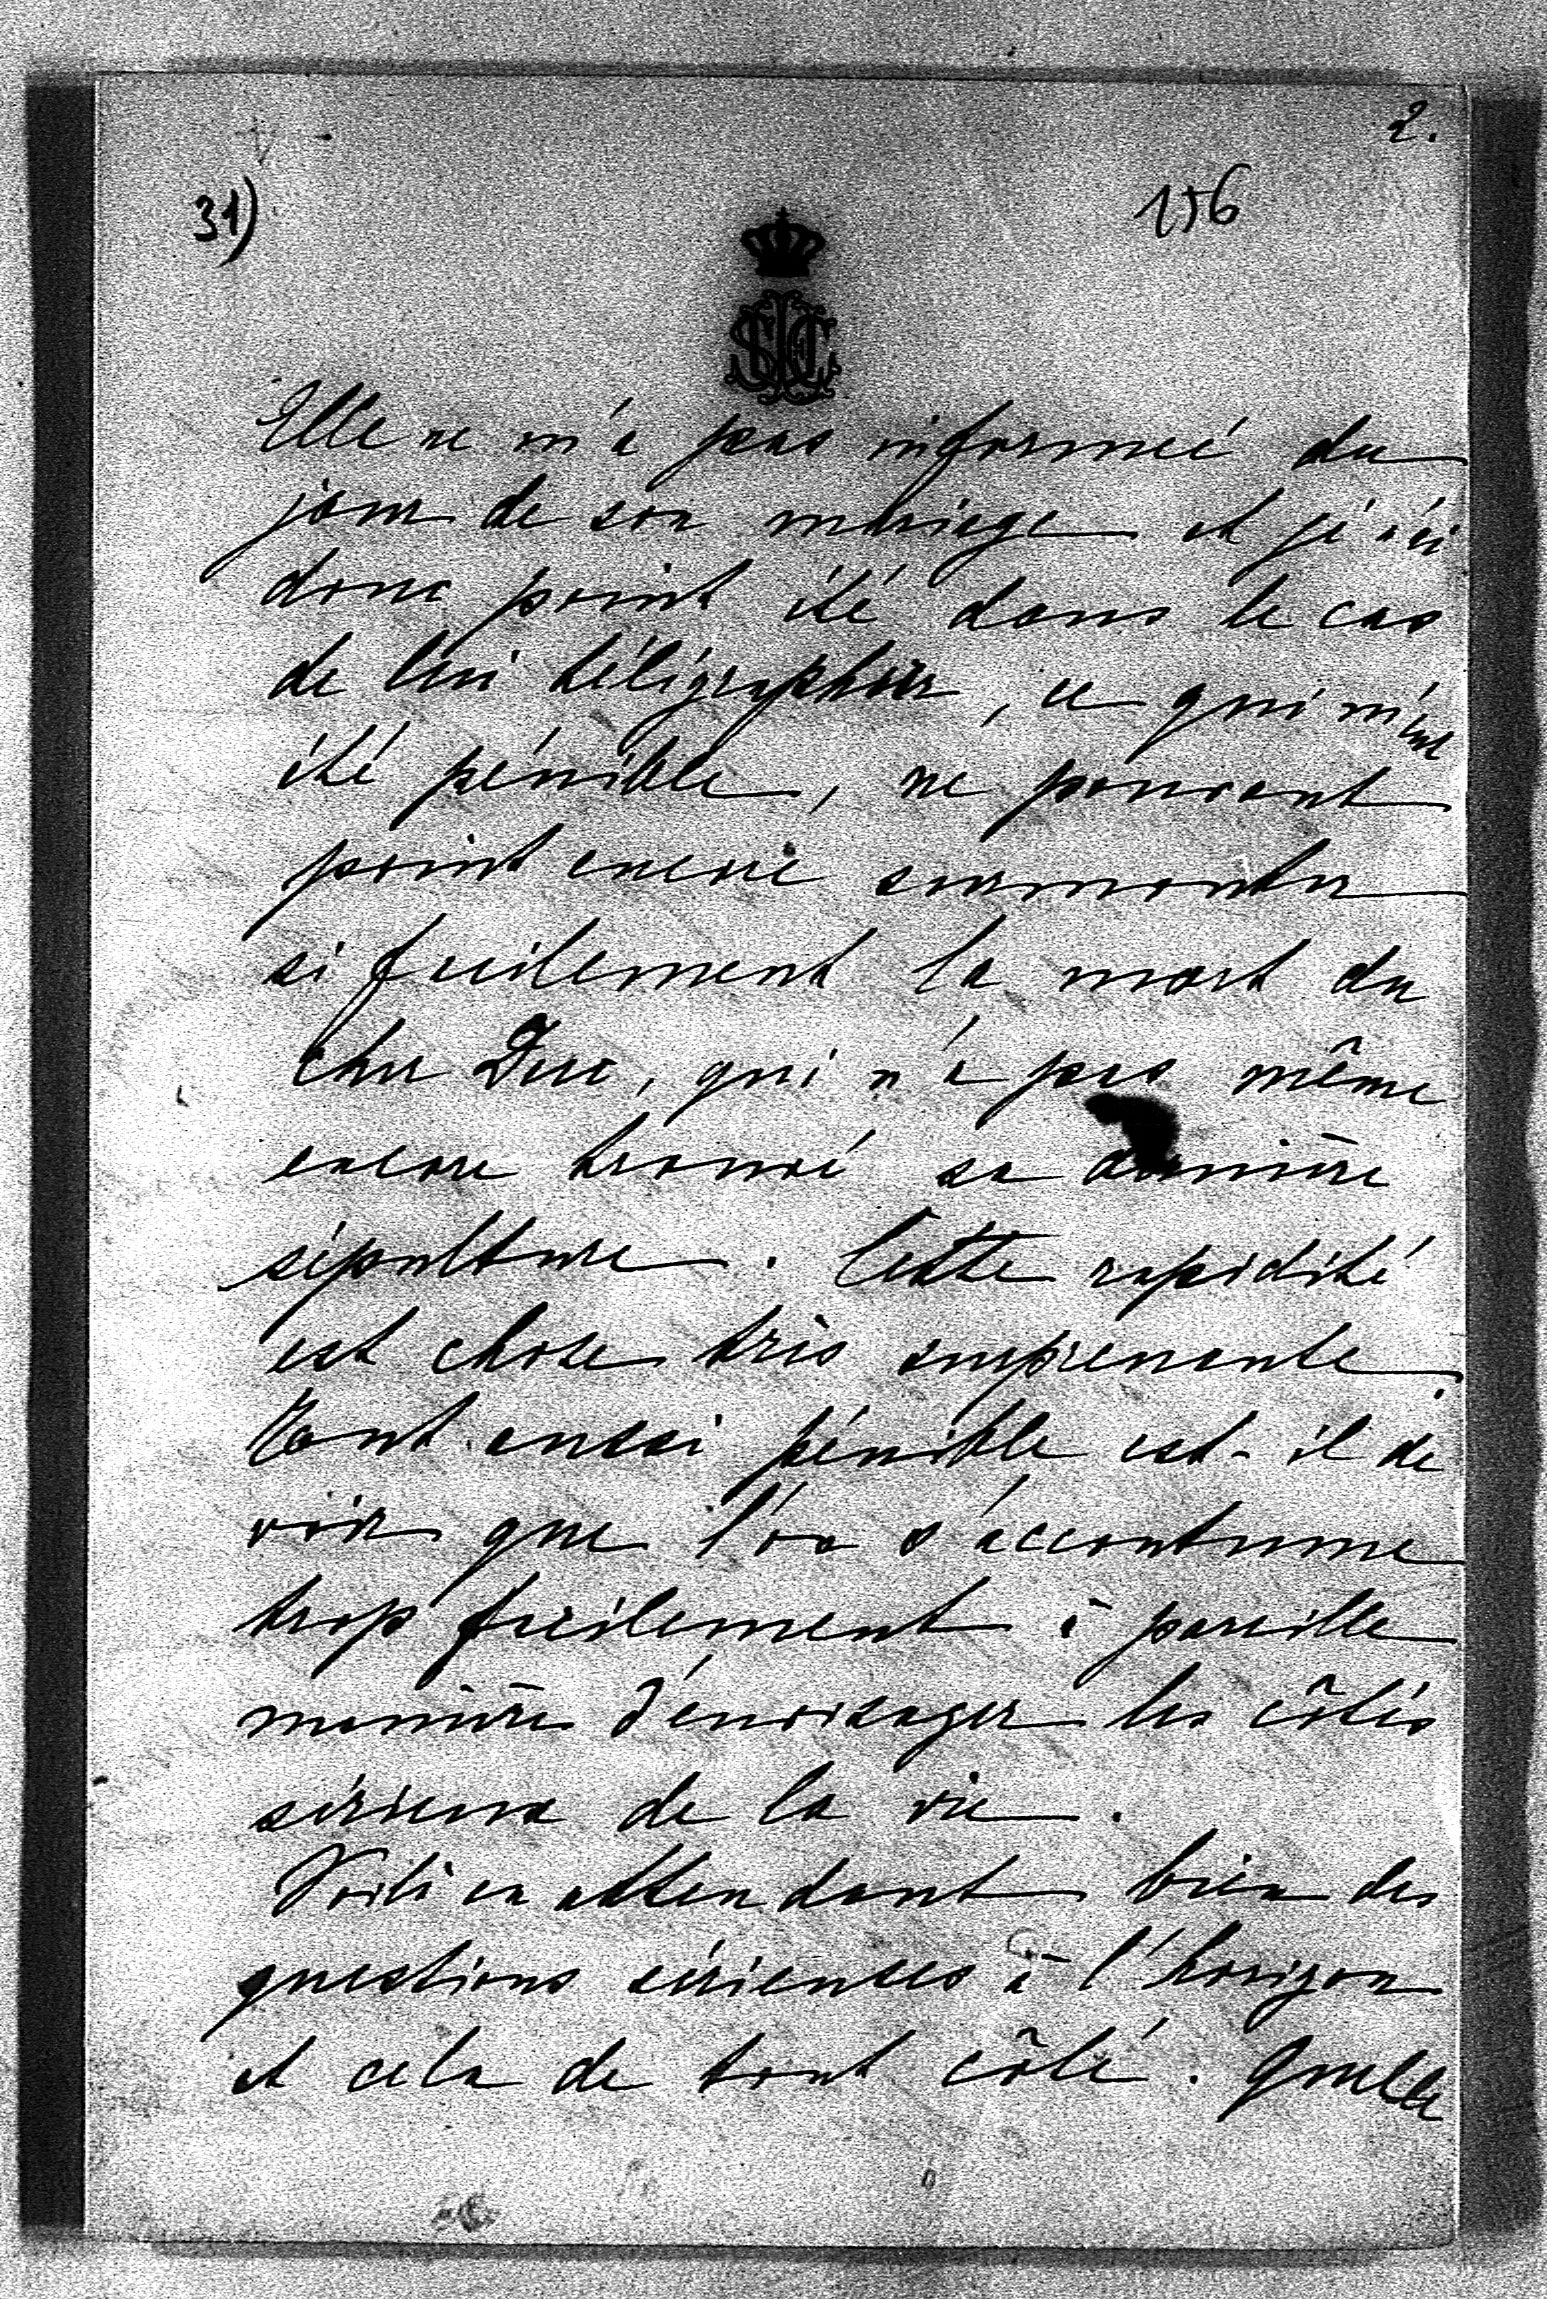 2.
31)
156
Elle ne m'a pas informeé du
jour de son mariage et je n'ai
donc point été dans le cas
de lui télégraphier, ce qui m'eut
été pénible, ne pouvant
point encore surmonter
si facilement la mort du
cher Duc, qui n'a pas même
encore trouvé sa dernière
sépulture. Cette rapidité
est chose très surprenante.
Tout aussi pénible est-il de
voir que l'on s'accoutume
trop facilement à pareille
manière d'envisager les côtés
sérieux de la vie.
Voilà en attendant bien des
questions sérieuses à l'horizon
et cela de tout côté. Quelle